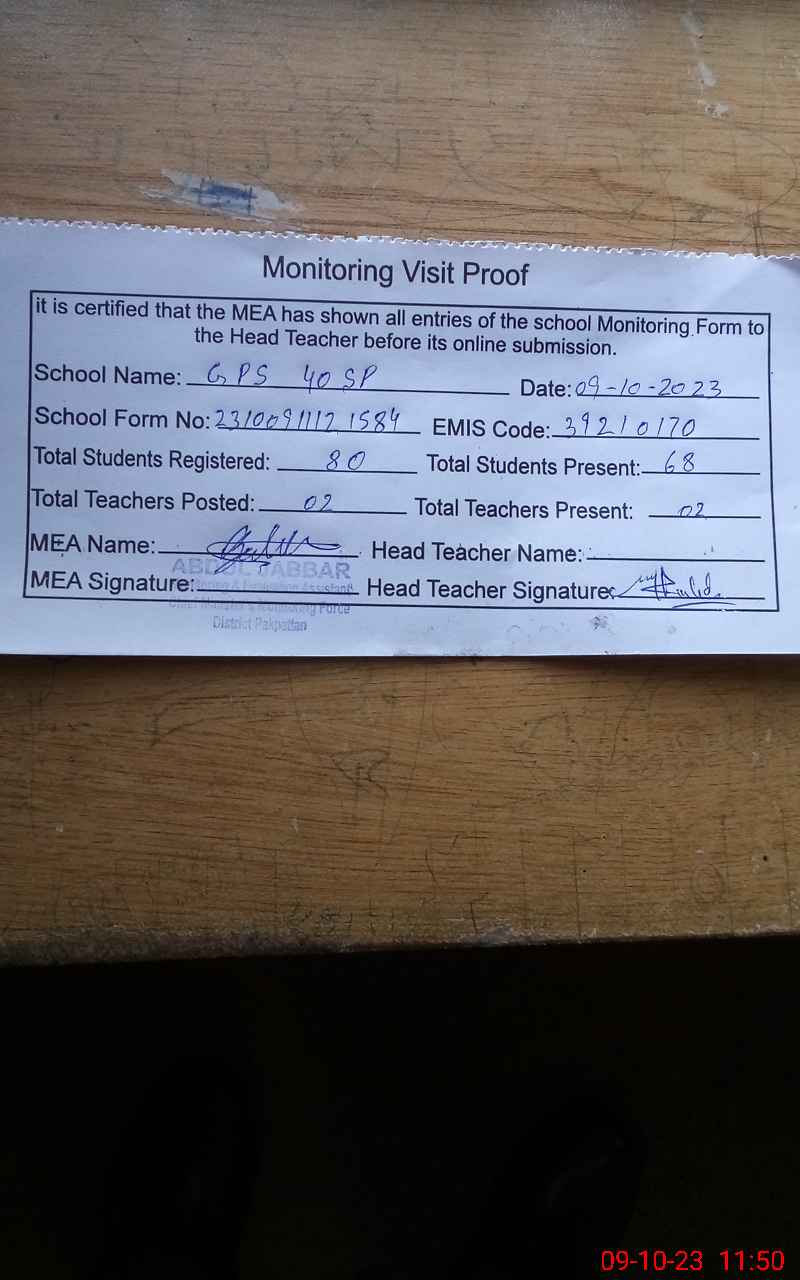 Monitoring Visit Proof
it is certified that the MEA has shown all entries of the school Monitoring Form to
the Head Teacher before its online submission.
School Name: GPS 40 SP Date: 09-10-2023
School Form No: 2310091112 1584 EMIS Code: 39210170
Total Students Registered: 80 Total Students Present: 68
Total Teachers Posted: 02 Total Teachers Present: 02
MEA Name: Head Teacher Name:
ABDUL JABBAR
MEA Signature: Head Teacher Signature:
& Evaluation Assistant
Chief Minister's Monitoring Force
District Pakpattan
09-10-23 11:50